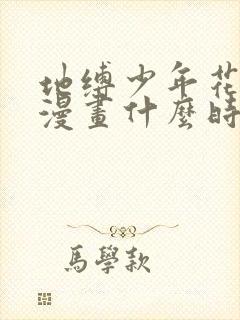 地缚少年花
漫畫什麼時
馬學款